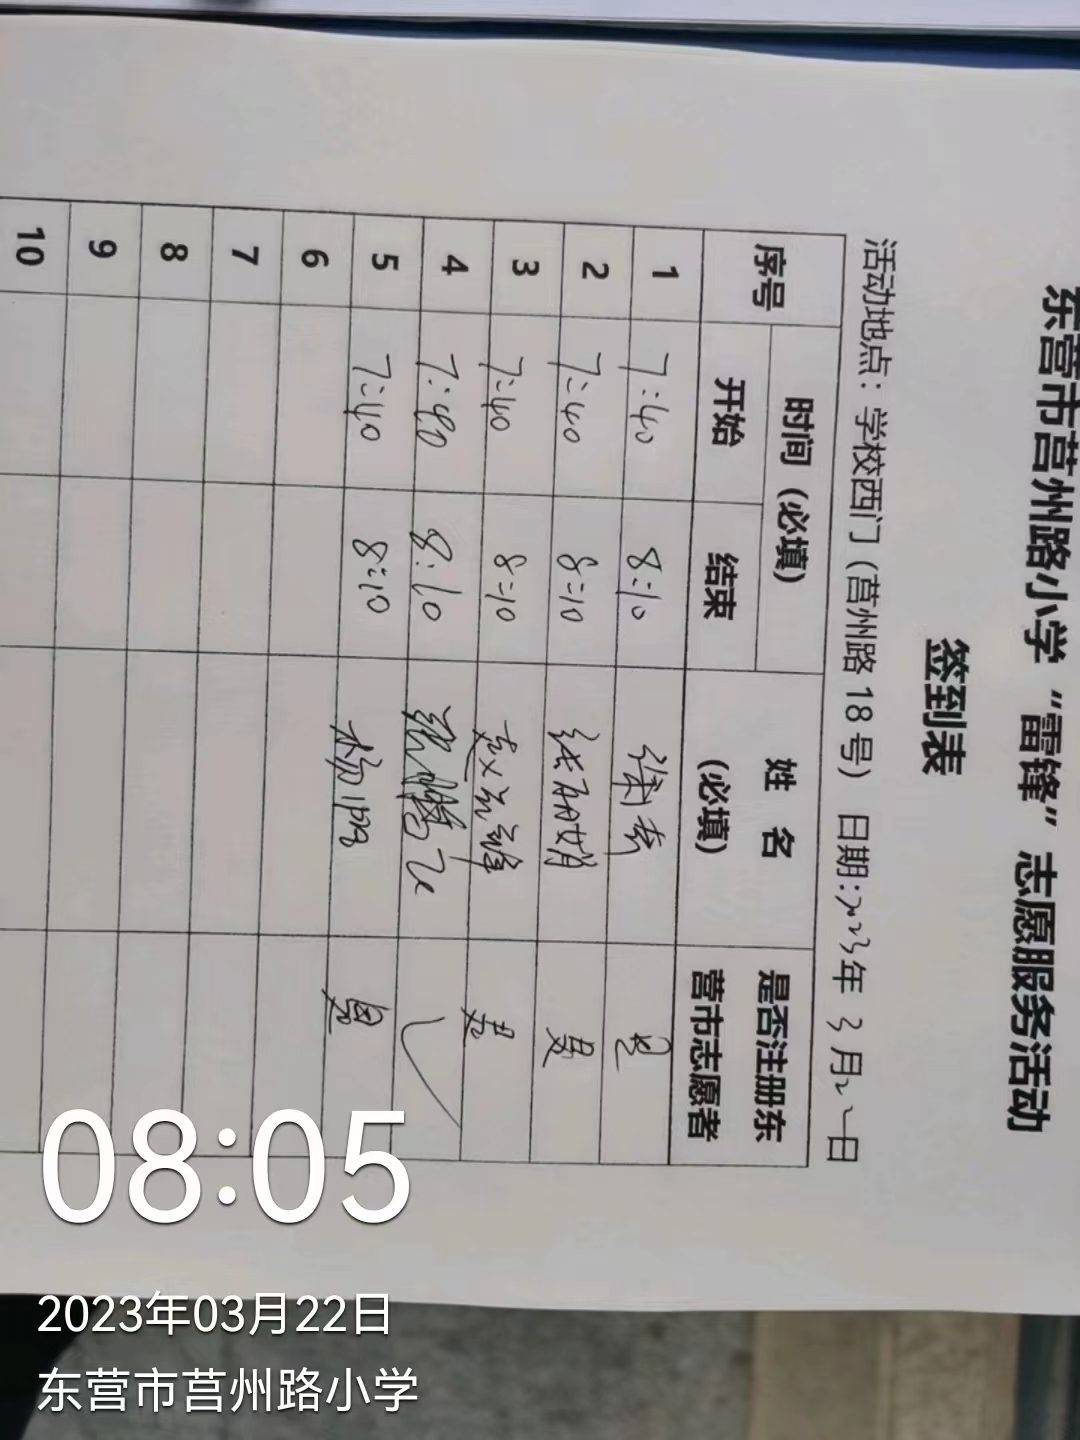 东营市莒州路小学“雷锋”志愿服务活动
签到表
活动地点：学校西门（莒州路18号） 日期:2023年 3月22日
序号 时间（必填） 姓 名 是否注册东
开始 结束 （必填） 营市志愿者
1 7:40 8:10 是
2 7:40 8:10 张丽娟 是
3 7:40 8:10 赵云锋 是
4 7:40 8:10 张腾飞 ✓
5 7:40 8:10 杨 是
6
7
8
9
10
08:05
2023年03月22日
东营市莒州路小学